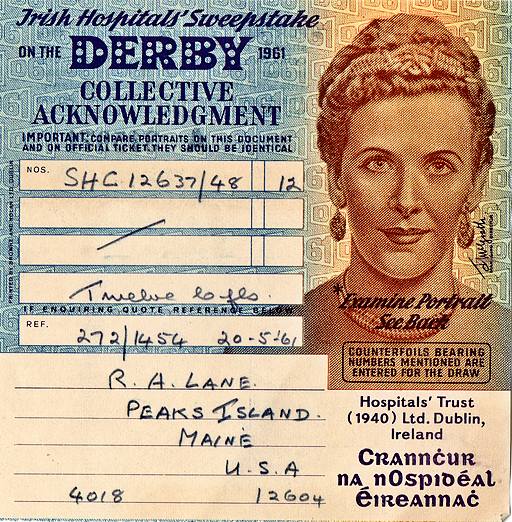 Irish Hospitals' Sweepstake
ON THE DERBY 1961
COLLECTIVE
ACKNOWLEDGMENT
IMPORTANT: COMPARE PORTRAITS ON THIS DOCUMENT
AND ON OFFICIAL TICKET. THEY SHOULD BE IDENTICAL
NOS. SHC 12637/48 12
Twelve
IF ENQUIRING QUOTE REFERENCE BELOW
REF. 272/1454 20-5-61
R. A. LANE.
PEAKS ISLAND.
MAINE
U.S.A
4018 12604
*Examine Portrait
See Back
COUNTERFOILS BEARING
NUMBERS MENTIONED ARE
ENTERED FOR THE DRAW
Hospitals' Trust
(1940) Ltd. Dublin,
Ireland
Crannċur
na nOspidéal
Éireannaċ